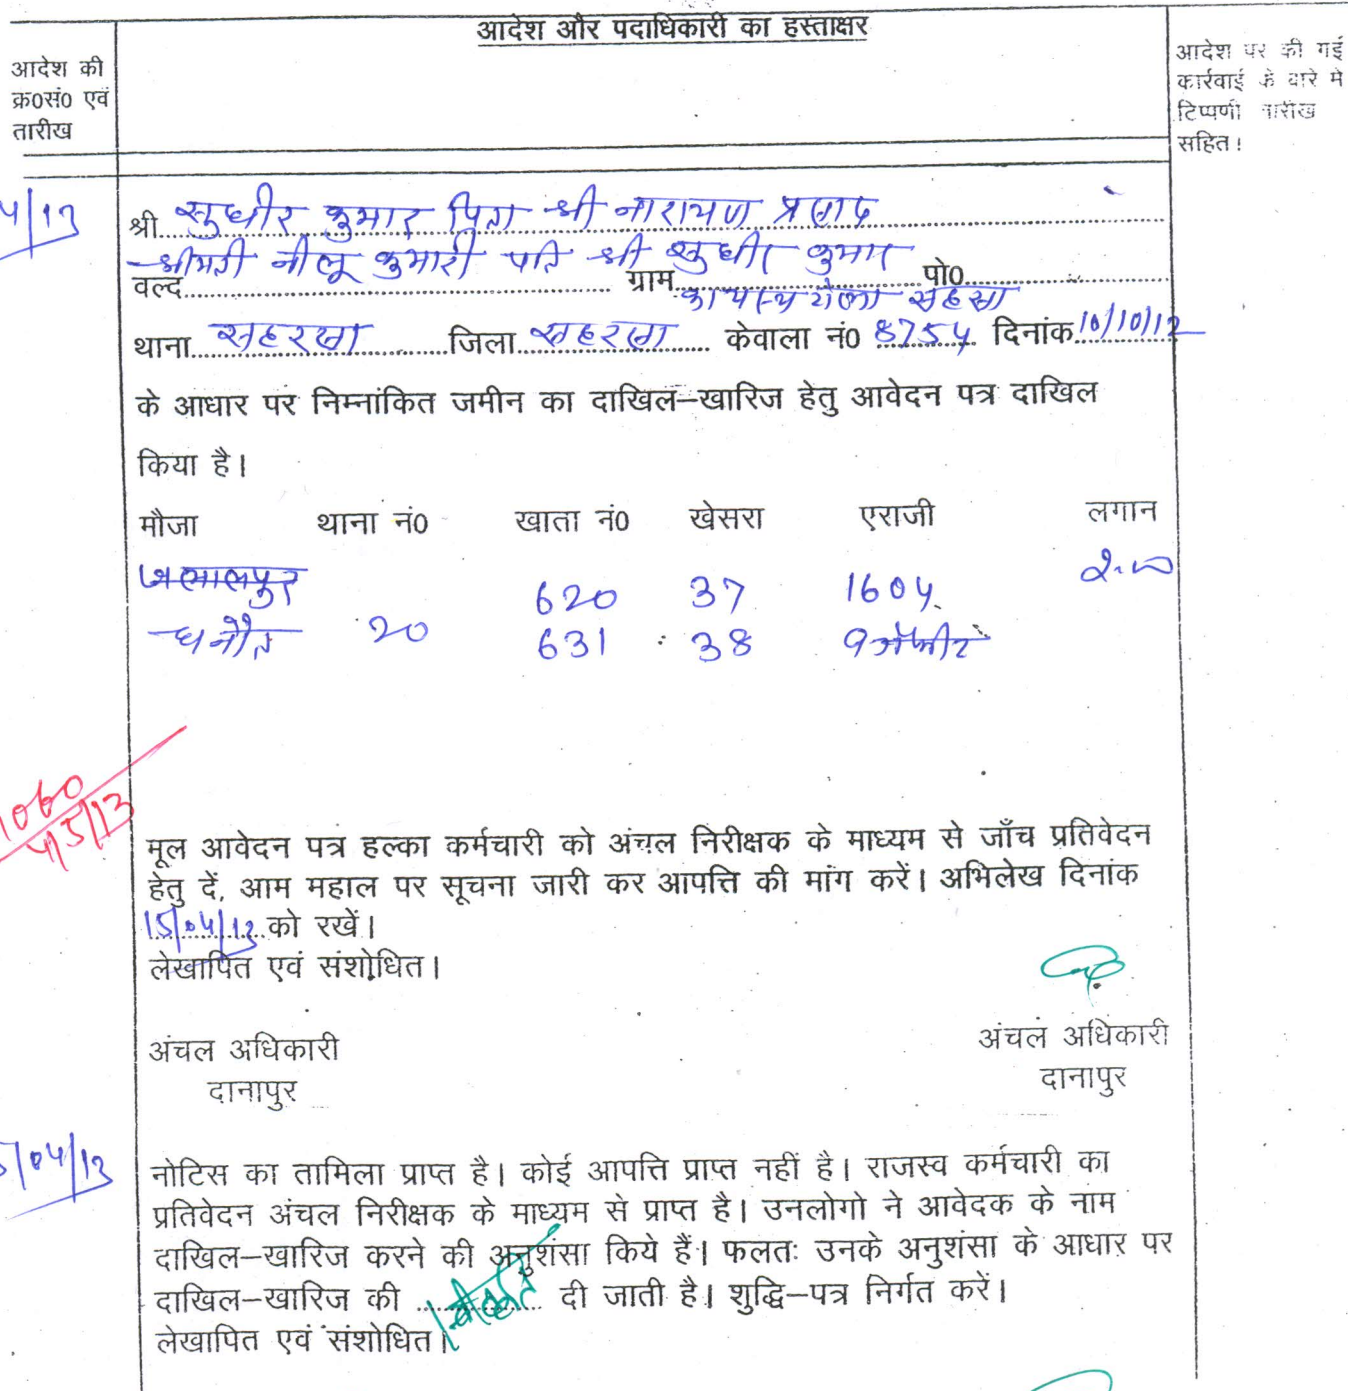 आदेश और पदाधिकारी का हस्ताक्षर
आदेश की
क्र0सं0 एवं
तारीख
आदेश पर की गई
कार्रवाई के बारे मे
टिप्पणी तारीख
सहित।
4/13
श्री सुधीर कुमार पिता श्री नारायण प्रसाद
श्रीमती नीलू कुमारी पति श्री सुधीर कुमार
वल्द ग्राम पो0
कायस्थ टोला सहरसा
थाना सहरसा जिला सहरसा केवाला नं0 8754 दिनांक 10/10/12
के आधार पर निम्नांकित जमीन का दाखिल–खारिज हेतु आवेदन पत्र दाखिल
किया है।
मौजा थाना नं0 खाता नं0 खेसरा एराजी लगान
जलालपुर 620 37 1604
धनौत 20 631 38
1060
4/5/13
मूल आवेदन पत्र हल्का कर्मचारी को अंचल निरीक्षक के माध्यम से जाँच प्रतिवेदन
हेतु दें, आम महाल पर सूचना जारी कर आपत्ति की मांग करें। अभिलेख दिनांक
15/04/13 को रखें।
लेखापित एवं संशोधित।
अंचल अधिकारी अंचल अधिकारी
दानापुर दानापुर
5/04/13
नोटिस का तामिला प्राप्त है। कोई आपत्ति प्राप्त नहीं है। राजस्व कर्मचारी का
प्रतिवेदन अंचल निरीक्षक के माध्यम से प्राप्त है। उनलोगो ने आवेदक के नाम
दाखिल–खारिज करने की अनुशंसा किये हैं। फलतः उनके अनुशंसा के आधार पर
दाखिल–खारिज की स्वीकृति दी जाती है। शुद्धि–पत्र निर्गत करें।
लेखापित एवं संशोधित।